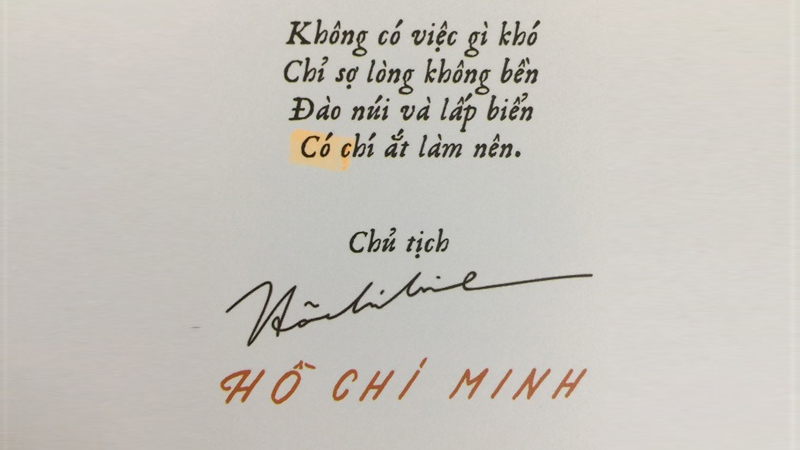 Không có việc gì khó
Chỉ sợ lòng không bền
Đào núi và lấp biển
Có chí ắt làm nên.
Chủ tịch
Hồ Chí Minh
HỒ CHÍ MINH